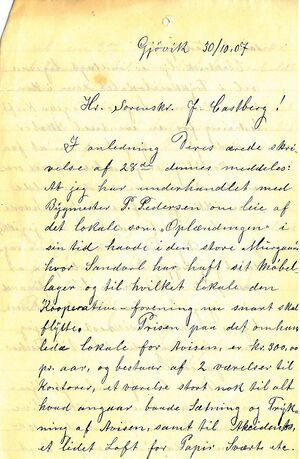 Gjövik 30/10.07
Hr. Sorenskr. J. Castberg!
I anledning Deres ærede skri-
velse af 28de dennes meddeles:
At jeg har underhandlet med
Bygmester P. Pedersen om leie af
det lokale som "Oplændingen" i
sin tid havde i den store Murgaard
hvor Sandvol har haft sit Möbel-
lager og til hvilket lokale den
Kooperative forening nu snart skal
flytte. Prisen paa det omhan-
lede lokale for Avisen, er kr. 300,00
pr. aar, og bestaar af 2 værelser til
Kontorer, et værelse stort nok til alt
hvad angaar baade Sætning og Tryk-
ning af Avisen, samt til Akcidens,
et lidet Loft for Papir Sværte etc.